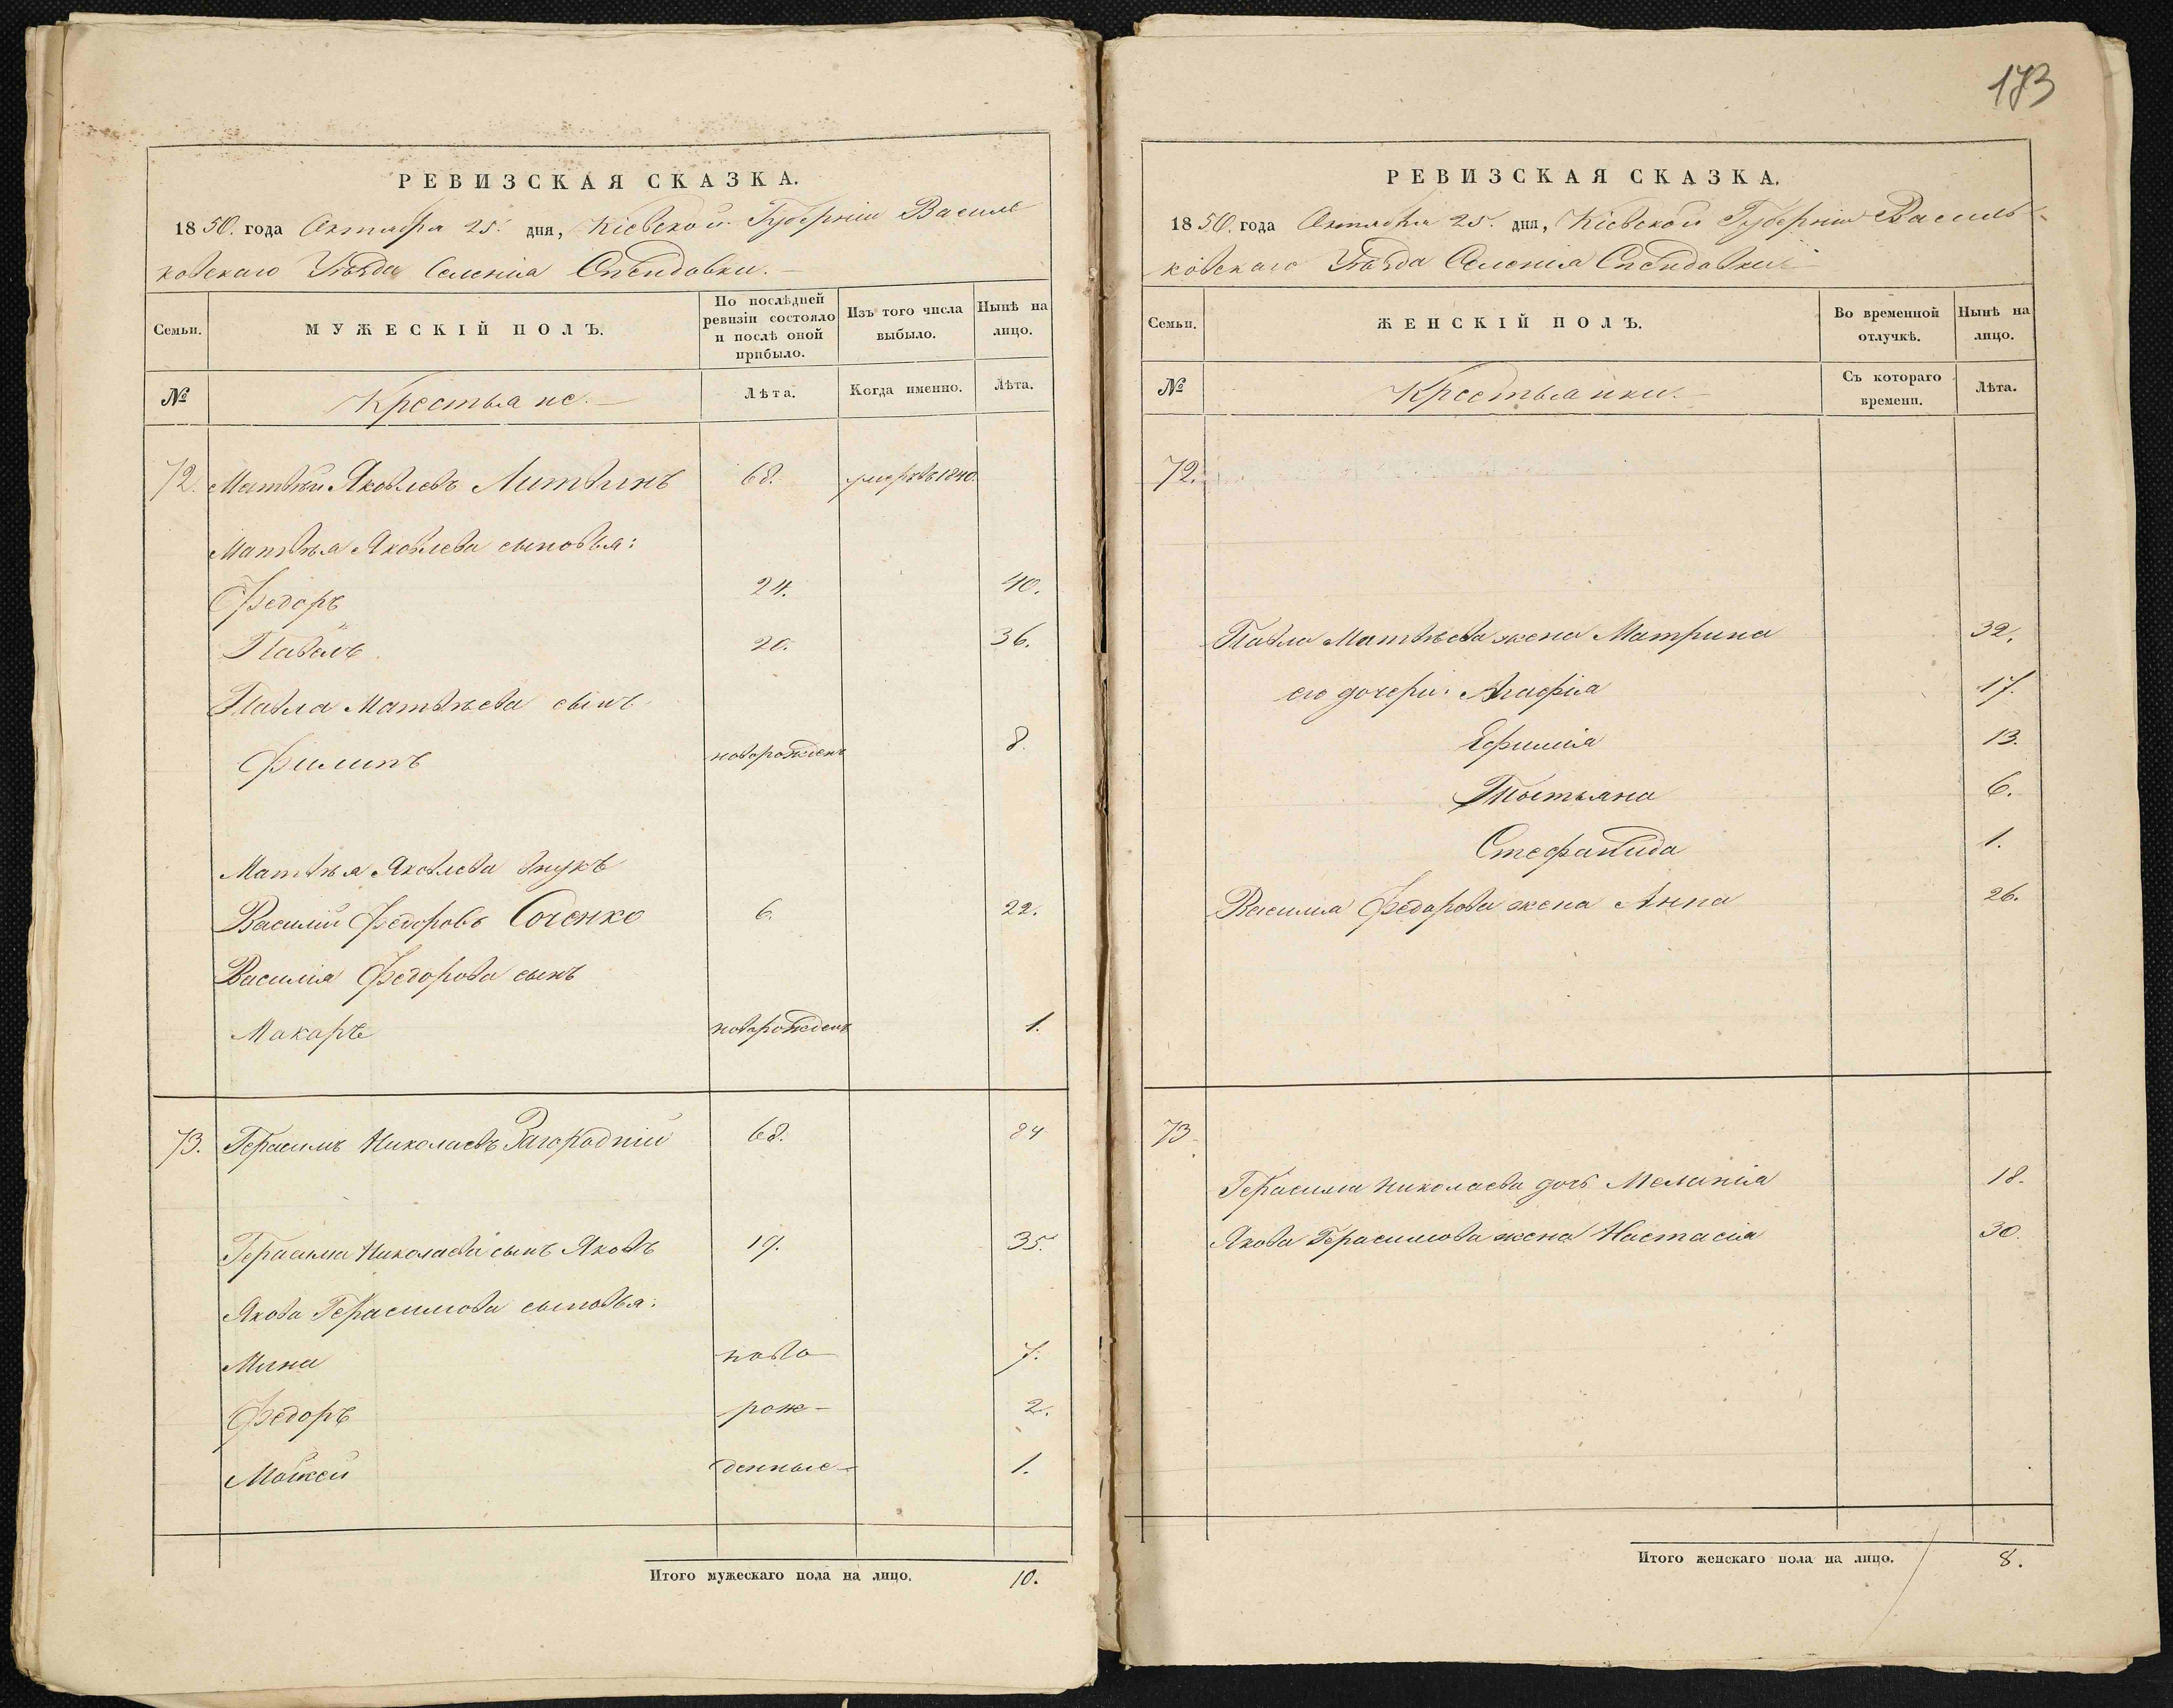 РЕВИЗСКАЯ СКАЗКА.
1850. года Октября 25. дня, Кіевской Губерніи Василь
ковскаго Уѣзда Селенія
Семьи.
МУЖЕСКІЙ ПОЛЪ.
По послѣдней
ревизіи состояло
и послѣ оной
прибыло.
Изъ того числа
выбыло.
Нынѣ на
лицо.
№
Крестьяне.
Лѣта.
Когда именно.
Лѣта.
72. Матвѣй Яковлевъ Литвинъ 68. умеръ въ 1840.
Матвѣя Яковлева сыновья:
Федоръ 24. 40.
Павелъ 20. 36.
Павла Матвѣева сынъ
Филипъ новорожденъ 8.
Матвѣя Яковлева внукъ
Василій Федоровъ Соченко 6. 22.
Василія Федорова сынъ
Макаръ новорожденъ 1.
73. Герасимъ Николаевъ Загородній 68. 84
Герасима Николаева сынъ Яковъ 19. 35.
Якова Герасимова сыновья:
Мина ново 7.
Федоръ рож- 2.
Мойсей денные 1.
Итого мужескаго пола на лицо. 10.
173
РЕВИЗСКАЯ СКАЗКА.
1850. года Октября 25. дня, Кіевской Губерніи Василь-
ковскаго Уѣзда Селенія
Семьи.
ЖЕНСКІЙ ПОЛЪ.
Во временной
отлучкѣ.
Нынѣ на
лицо.
№
Крестьянки.
Съ котораго
времени.
Лѣта.
72.
Павла Матвѣева жена Матрина 32.
его дочери: Агафія 17.
Ефимія 13.
Татьяна 6.
Стефанида 1.
Василія Федорова жена Анна 26.
73.
Герасима Николаева дочь Меланія 18.
Якова Герасимова жена Настасія 30.
Итого женскаго пола на лицо. 8.